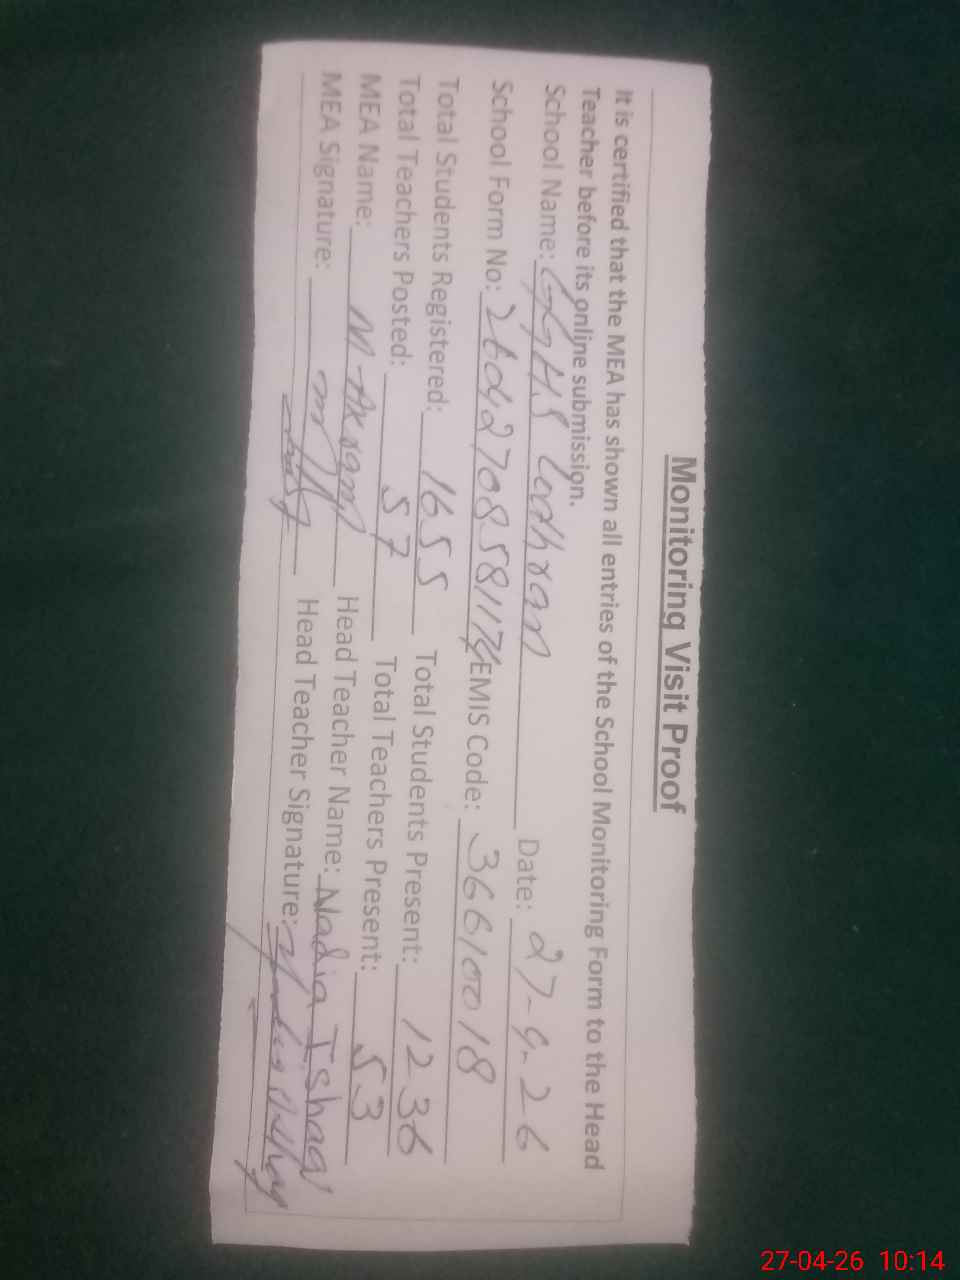 Monitoring Visit Proof
It is certified that the MEA has shown all entries of the School Monitoring Form to the Head
Teacher before its online submission.
School Name: GGHS Lodhran Date: 27-4-26
School Form No: EMIS Code: 36610018
Total Students Registered: 1655 Total Students Present: 1236
Total Teachers Posted: 57 Total Teachers Present: 53
MEA Name: M Akram Head Teacher Name: Nadia Ishaq
MEA Signature: Head Teacher Signature:
27-04-26 10:14